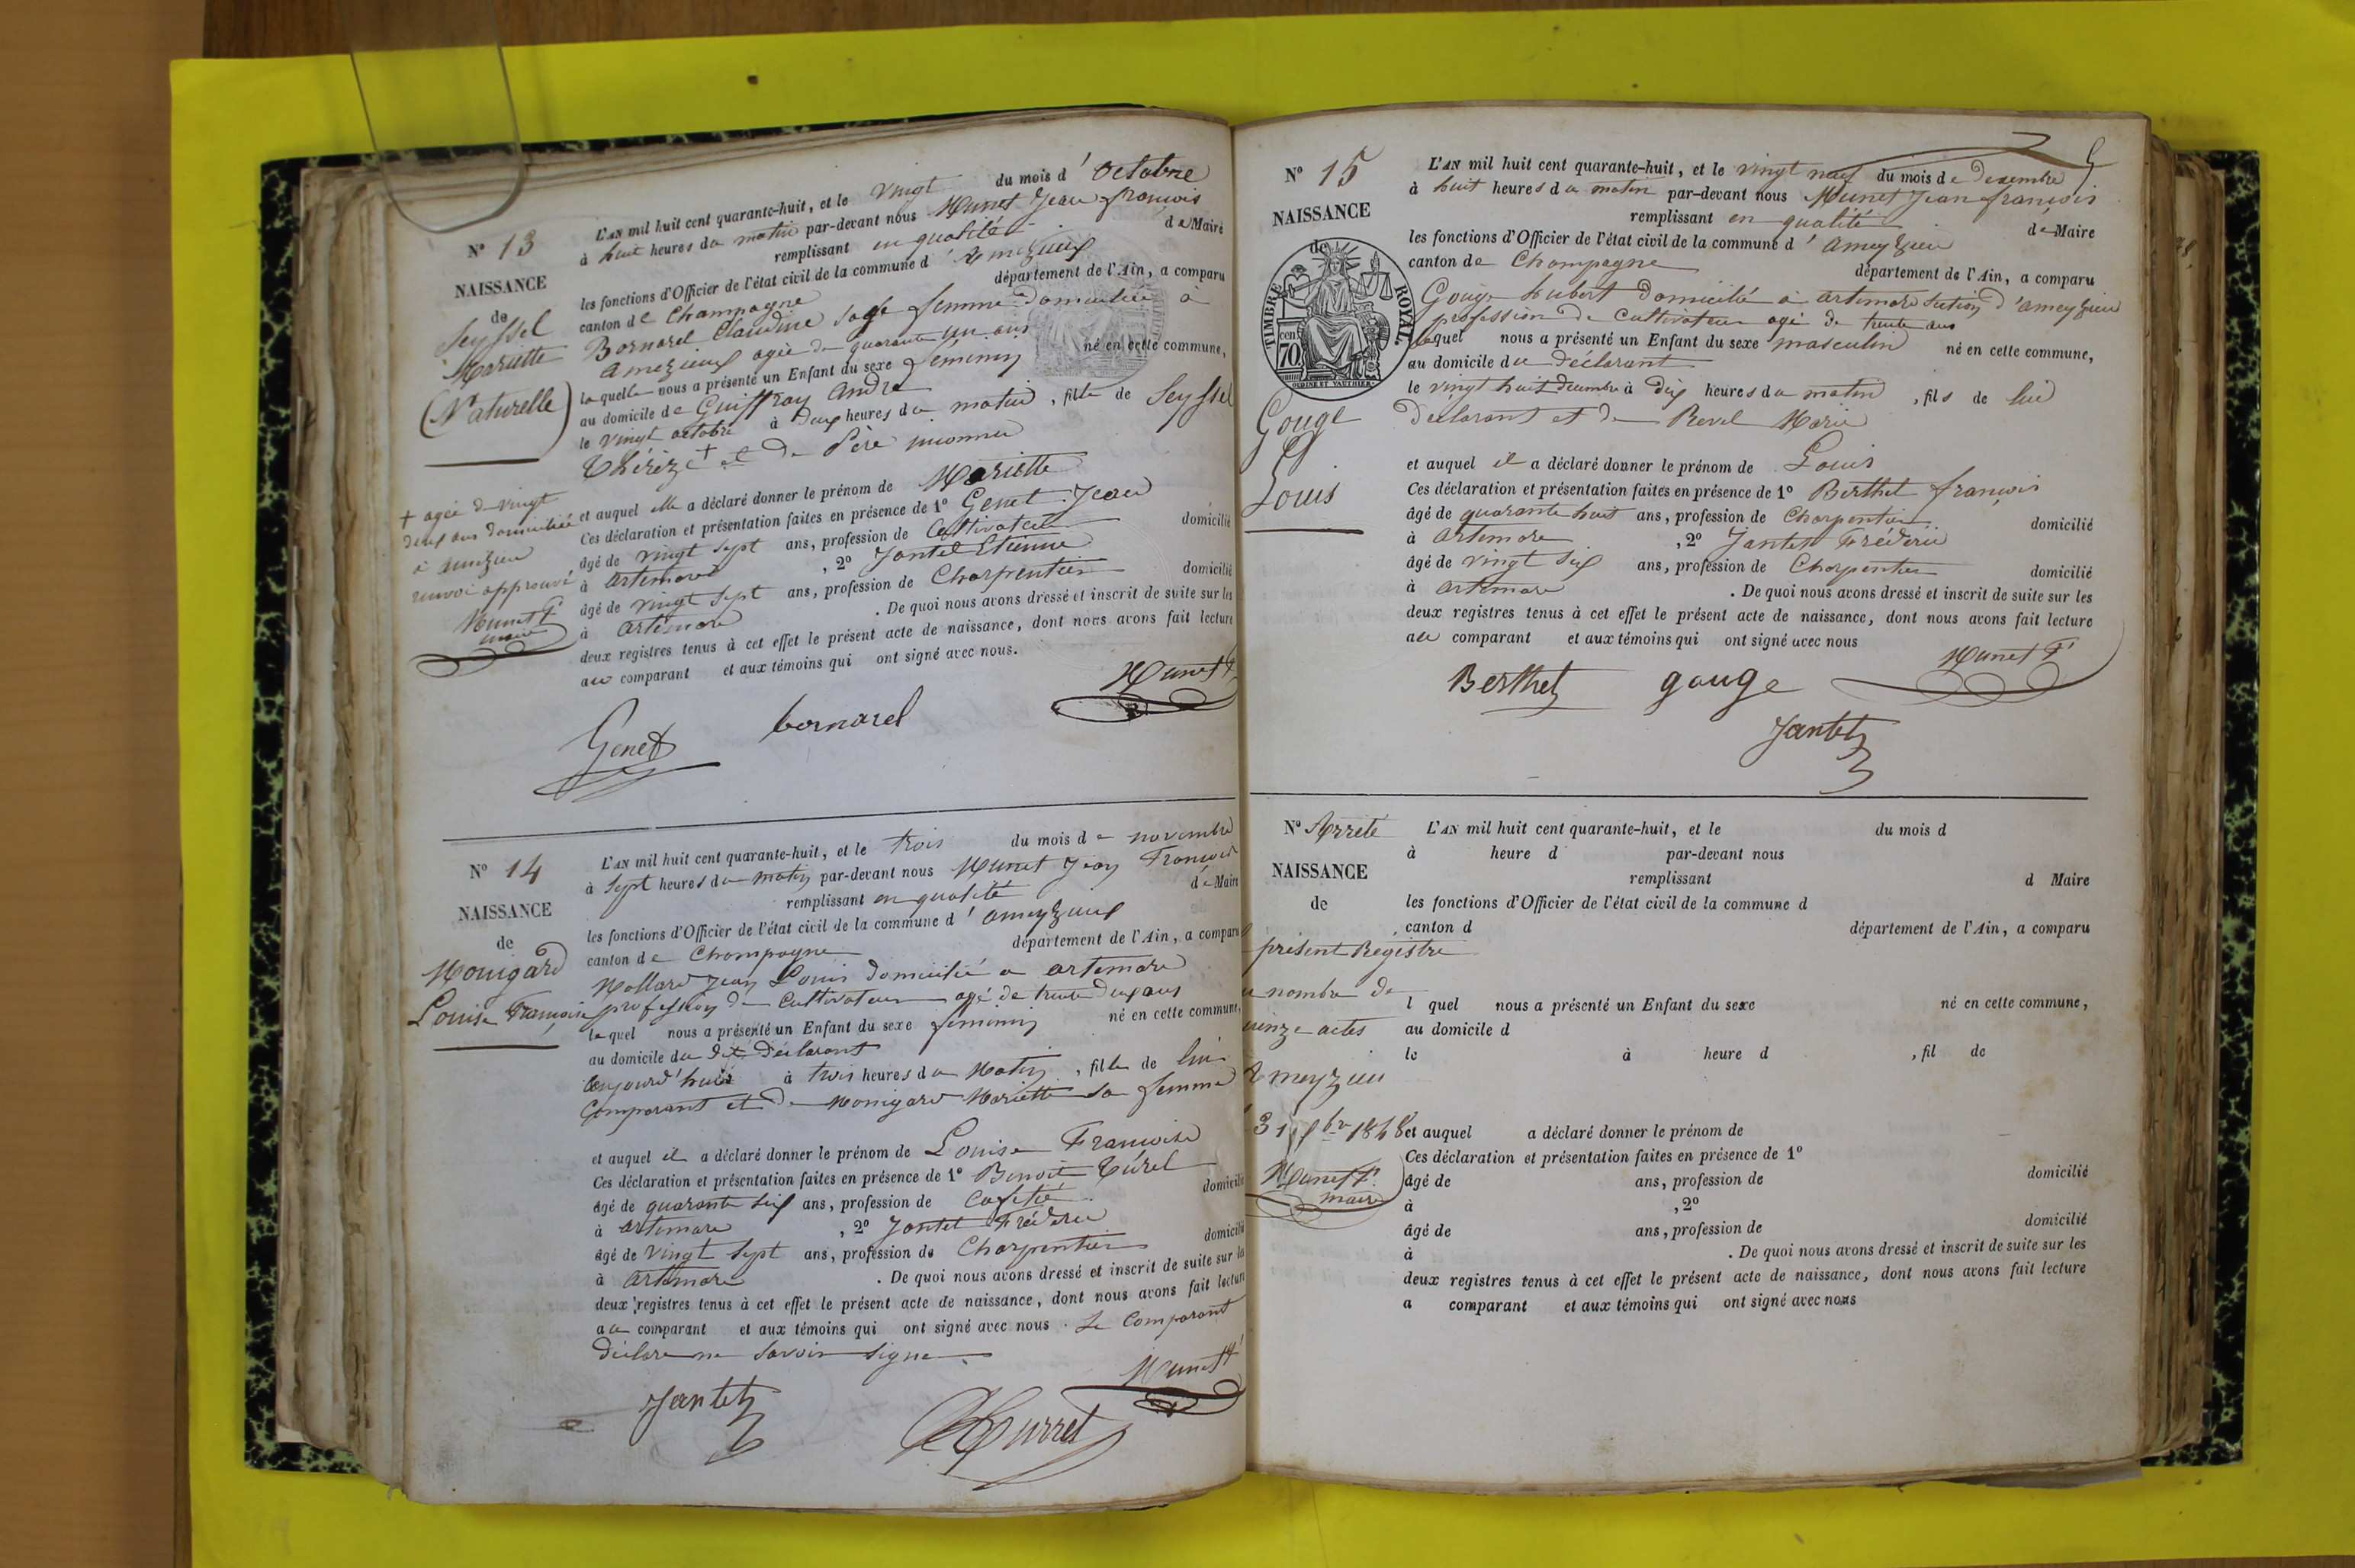 N° 13
NAISSANCE
de
Seyssel
Mariette
(Naturelle)
L'AN mil huit cent quarante-huit, et le vingt du mois d' octobre
à huit heures du matin par-devant nous Munet Jean françois
remplissant en qualité de Maire
les fonctions d'Officier de l'état civil de la commune d' Amezieux
canton de Champagne département de l'Ain, a comparu
Bornarel Claudine sage femme domiciliée à
Amezieux agée de quarante un ans
laquelle nous a présenté un Enfant du sexe féminin né en cette commune,
au domicile de Guiffray andré
le vingt octobre à deux heures du matin, fille de Seyssel
Thérèze + et de Père inconnu
+ agée de vingt
deux ans domiciliée
à amezieu
renvoi approuvé
Munet F
maire
et auquel elle a déclaré donner le prénom de Mariette
Ces déclaration et présentation faites en présence de 1° Genet Jean
âgé de vingt sept ans, profession de Cultivateur domicilié
à artemare, 2° Jantet Etienne
âgé de vingt sept ans, profession de Charpentier domicilié
à artemare. De quoi nous avons dressé et inscrit de suite sur les
deux registres tenus à cet effet le présent acte de naissance, dont nous avons fait lecture
au comparant et aux témoins qui ont signé avec nous.
Munet F
Genet bornarel
N° 14
NAISSANCE
de
Monigard
Louise Françoise
L'AN mil huit cent quarante-huit, et le trois du mois de novembre
à sept heures du matin par-devant nous Munet Jean François
remplissant en qualité de Maire
les fonctions d'Officier de l'état civil de la commune d' ameyzieux
canton de Champagne département de l'Ain, a comparu
Mollard Jean Louis domicilié a artemare
profession de Cultivateur agé de trente deux ans
lequel nous a présenté un Enfant du sexe féminin né en cette commune,
au domicile du dit déclarant
aujourd'huis à trois heures du Matin, fille de lui
Comparant et de Monigard Mariette sa femme
et auquel il a déclaré donner le prénom de Louise Françoise
Ces déclaration et présentation faites en présence de 1° Benoit
âgé de quarante six ans, profession de Cafetié domicilié
à artemare, 2° Jantet Fréderic
âgé de vingt sept ans, profession de Charpentier domicilié
à artemare. De quoi nous avons dressé et inscrit de suite sur les
deux registres tenus à cet effet le présent acte de naissance, dont nous avons fait lecture
au comparant et aux témoins qui ont signé avec nous. Le Comparant
déclare ne savoir signe
Munet F
Jantet
N° 15
NAISSANCE
de
TIMBRE ROYAL.
cen. 70
Gouge
Louis
5
L'AN mil huit cent quarante-huit, et le vingt neuf du mois de Decembre
à huit heures du matin par-devant nous Munet Jean françois
remplissant en qualité de Maire
les fonctions d'Officier de l'état civil de la commune d' ameyzieu
canton de Champagne département de l'Ain, a comparu
Gouge hubert domicilié à artemare section d'ameyzieu
profession de Cultivateur agé de trente ans
lequel nous a présenté un Enfant du sexe masculin né en cette commune,
au domicile du déclarant
le vingt huit decembre à dix heures du matin, fils de lui
declarant et de Revel Marie
et auquel il a déclaré donner le prénom de Louis
Ces déclaration et présentation faites en présence de 1° Berthet françois
âgé de quarante huit ans, profession de Charpentier domicilié
à artemare, 2° Jantet Fréderic
âgé de vingt six ans, profession de Charpentier domicilié
à artemare. De quoi nous avons dressé et inscrit de suite sur les
deux registres tenus à cet effet le présent acte de naissance, dont nous avons fait lecture
au comparant et aux témoins qui ont signé avec nous
Munet F
Berthet gouge
Jantet
N° Arrété
NAISSANCE
de
présent Registre
nombre de
uinze actes
Ameyzieu
31 Xbre 1848
Munet F.
maire
L'AN mil huit cent quarante-huit, et le du mois d
à heure d par-devant nous
remplissant d Maire
les fonctions d'Officier de l'état civil de la commune d
canton d département de l'Ain, a comparu
l quel nous a présenté un Enfant du sexe né en cette commune,
au domicile d
le à heure d , fil de
et auquel a déclaré donner le prénom de
Ces déclaration et présentation faites en présence de 1°
âgé de ans, profession de domicilié
à , 2°
âgé de ans, profession de domicilié
à . De quoi nous avons dressé et inscrit de suite sur les
deux registres tenus à cet effet le présent acte de naissance, dont nous avons fait lecture
a comparant et aux témoins qui ont signé avec nous